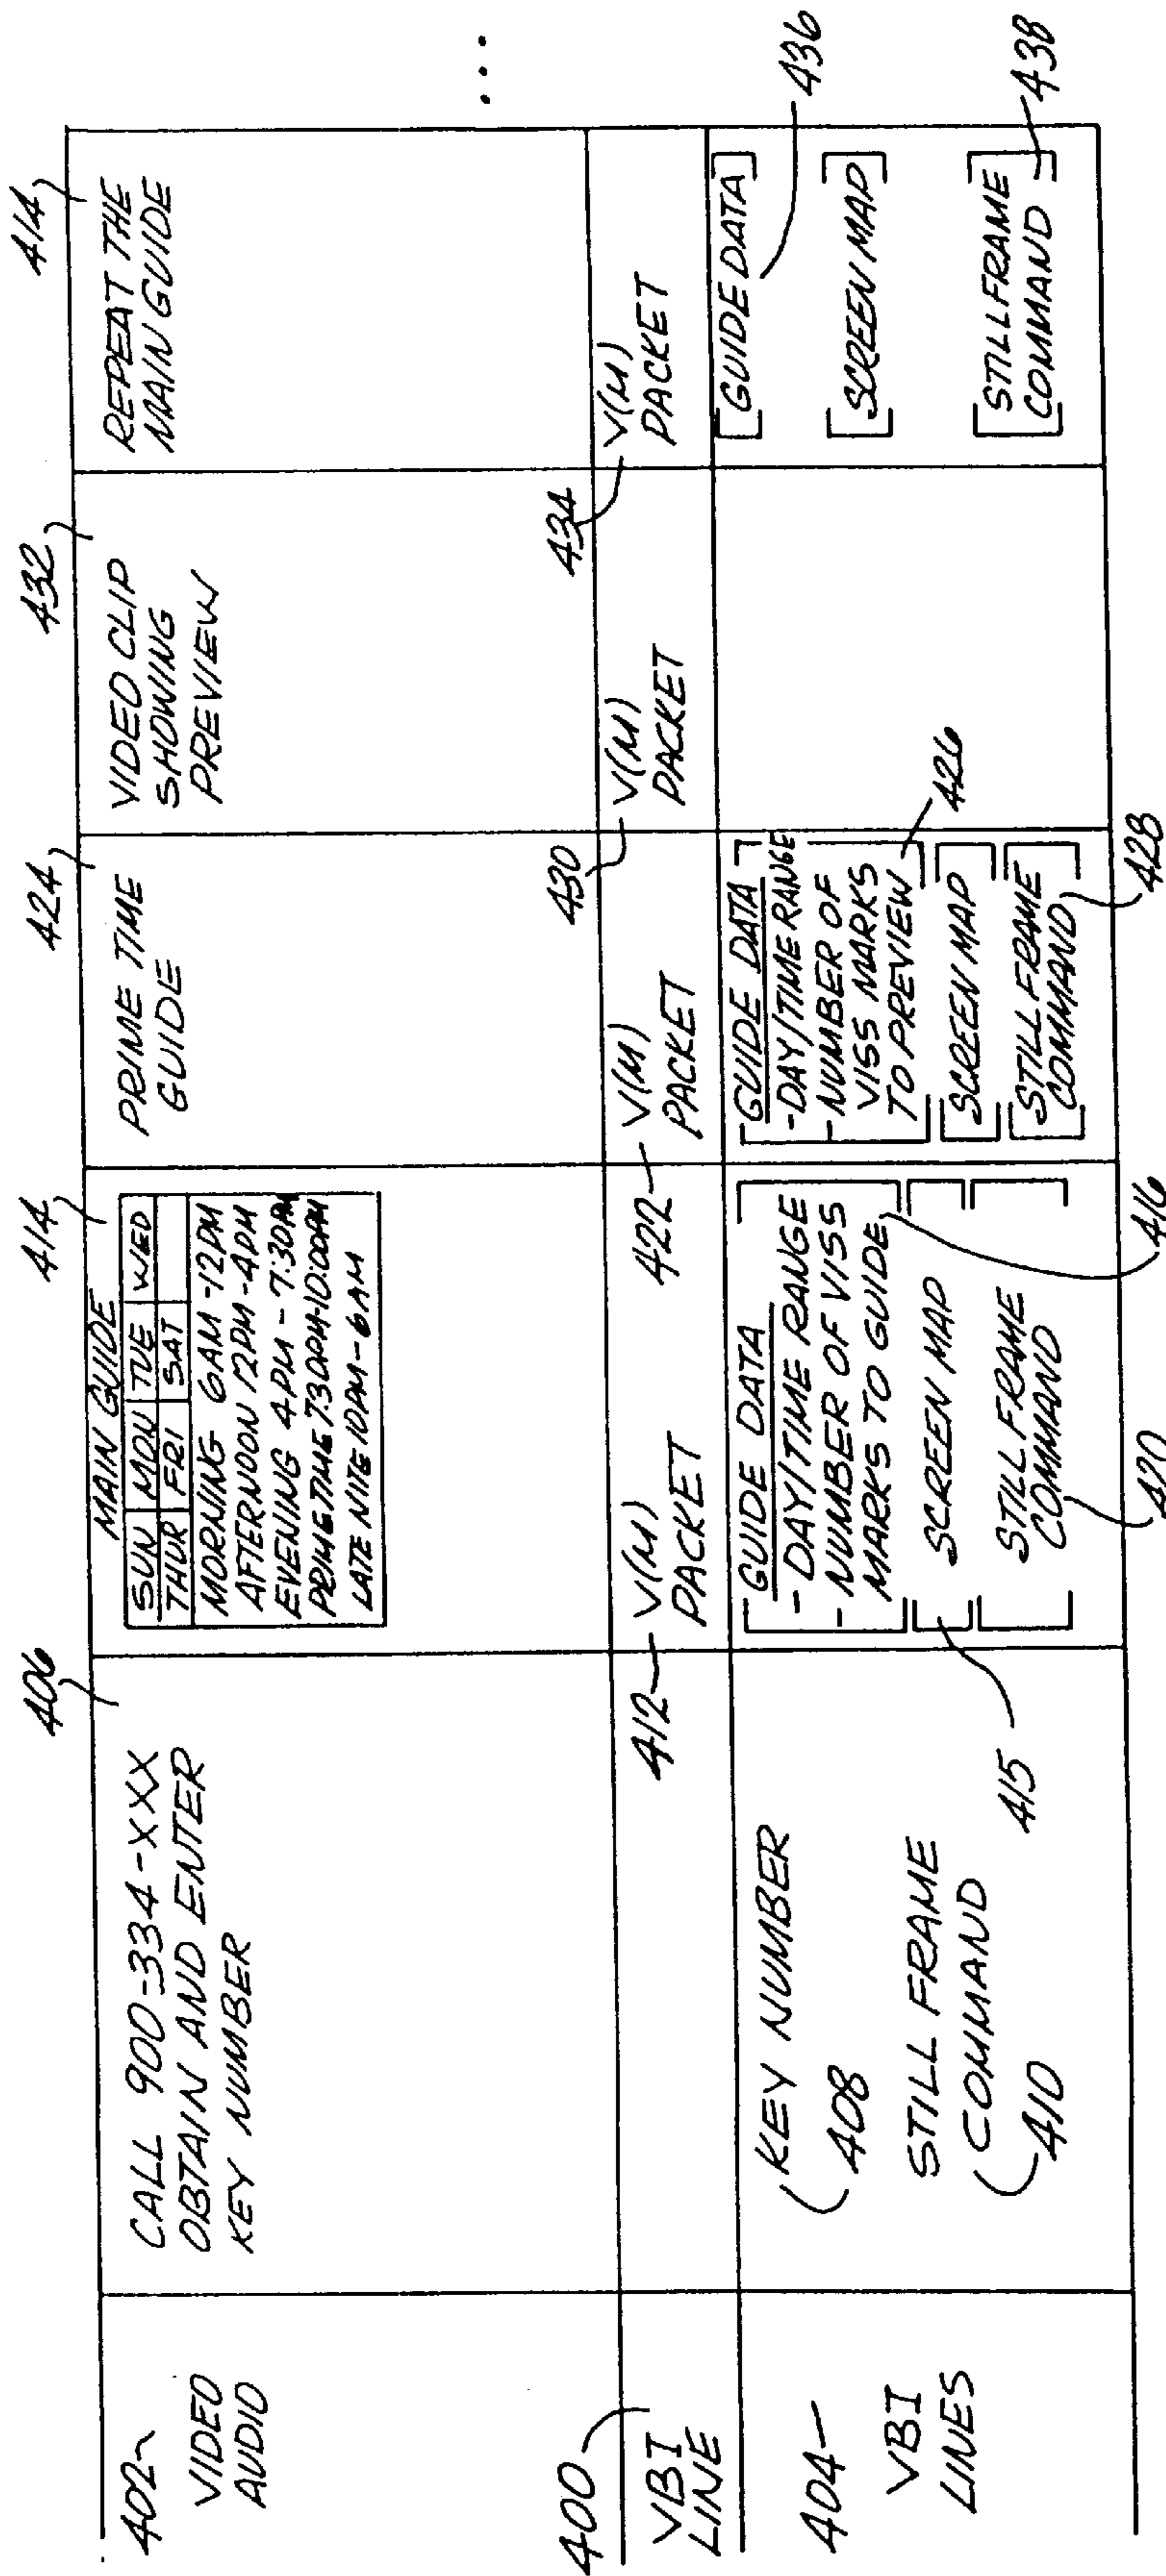 402
VIDEO
AUDIO
400
VBI
LINE
404
VBI
LINES
406
CALL 900-334-XXX
OBTAIN AND ENTER
KEY NUMBER
KEY NUMBER
408
STILL FRAME
COMMAND
410
414
MAIN GUIDE
SUN MON TUE WED
THUR FRI SAT
MORNING 6AM-12PM
AFTERNOON 12PM-4PM
EVENING 4PM-7:30PM
PRIME TIME 7:30PM-10:00PM
LATE NITE 10PM-6AM
412
V(M)
PACKET
GUIDE DATA
- DAY/TIME RANGE
- NUMBER OF VISS
MARKS TO GUIDE
416
415
SCREEN MAP
STILL FRAME
COMMAND
420
424
PRIME TIME
GUIDE
422
V(M)
PACKET
GUIDE DATA
- DAY/TIME RANGE
- NUMBER OF
VISS MARKS
TO PREVIEW
426
SCREEN MAP
STILL FRAME
COMMAND
428
432
VIDEO CLIP
SHOWING
PREVIEW
430
V(M)
PACKET
414
REPEAT THE
MAIN GUIDE
434
V(M)
PACKET
GUIDE DATA
436
SCREEN MAP
STILL FRAME
COMMAND
438
...